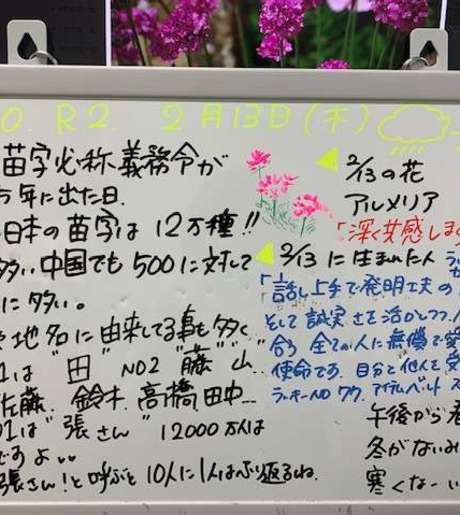 0. R2. 2月13日(木)
苗字必称義務令が
年に出た日.
日本の苗字は 12万種!!
多い中国でも500に対して
に多い。
地名に由来してる事も多く
1は "田" NO2 "藤" 山
佐藤. 鈴木. 高橋. 田中...
01は "張さん" 12000万人は
ですよ..
張さん!と呼ぶと 10人に1人はふり返るね.
2/13の花
アルメリア
「深く共感しま
2/13 に 生まれた人
「話し上手で発明工夫の
そして誠実さを活かしつつ
合う 全ての人に無償で
使命です. 自分と他人を
ラッキーNO 7,9. アイテム ベルト ス
午後から
冬がないみ
寒くな